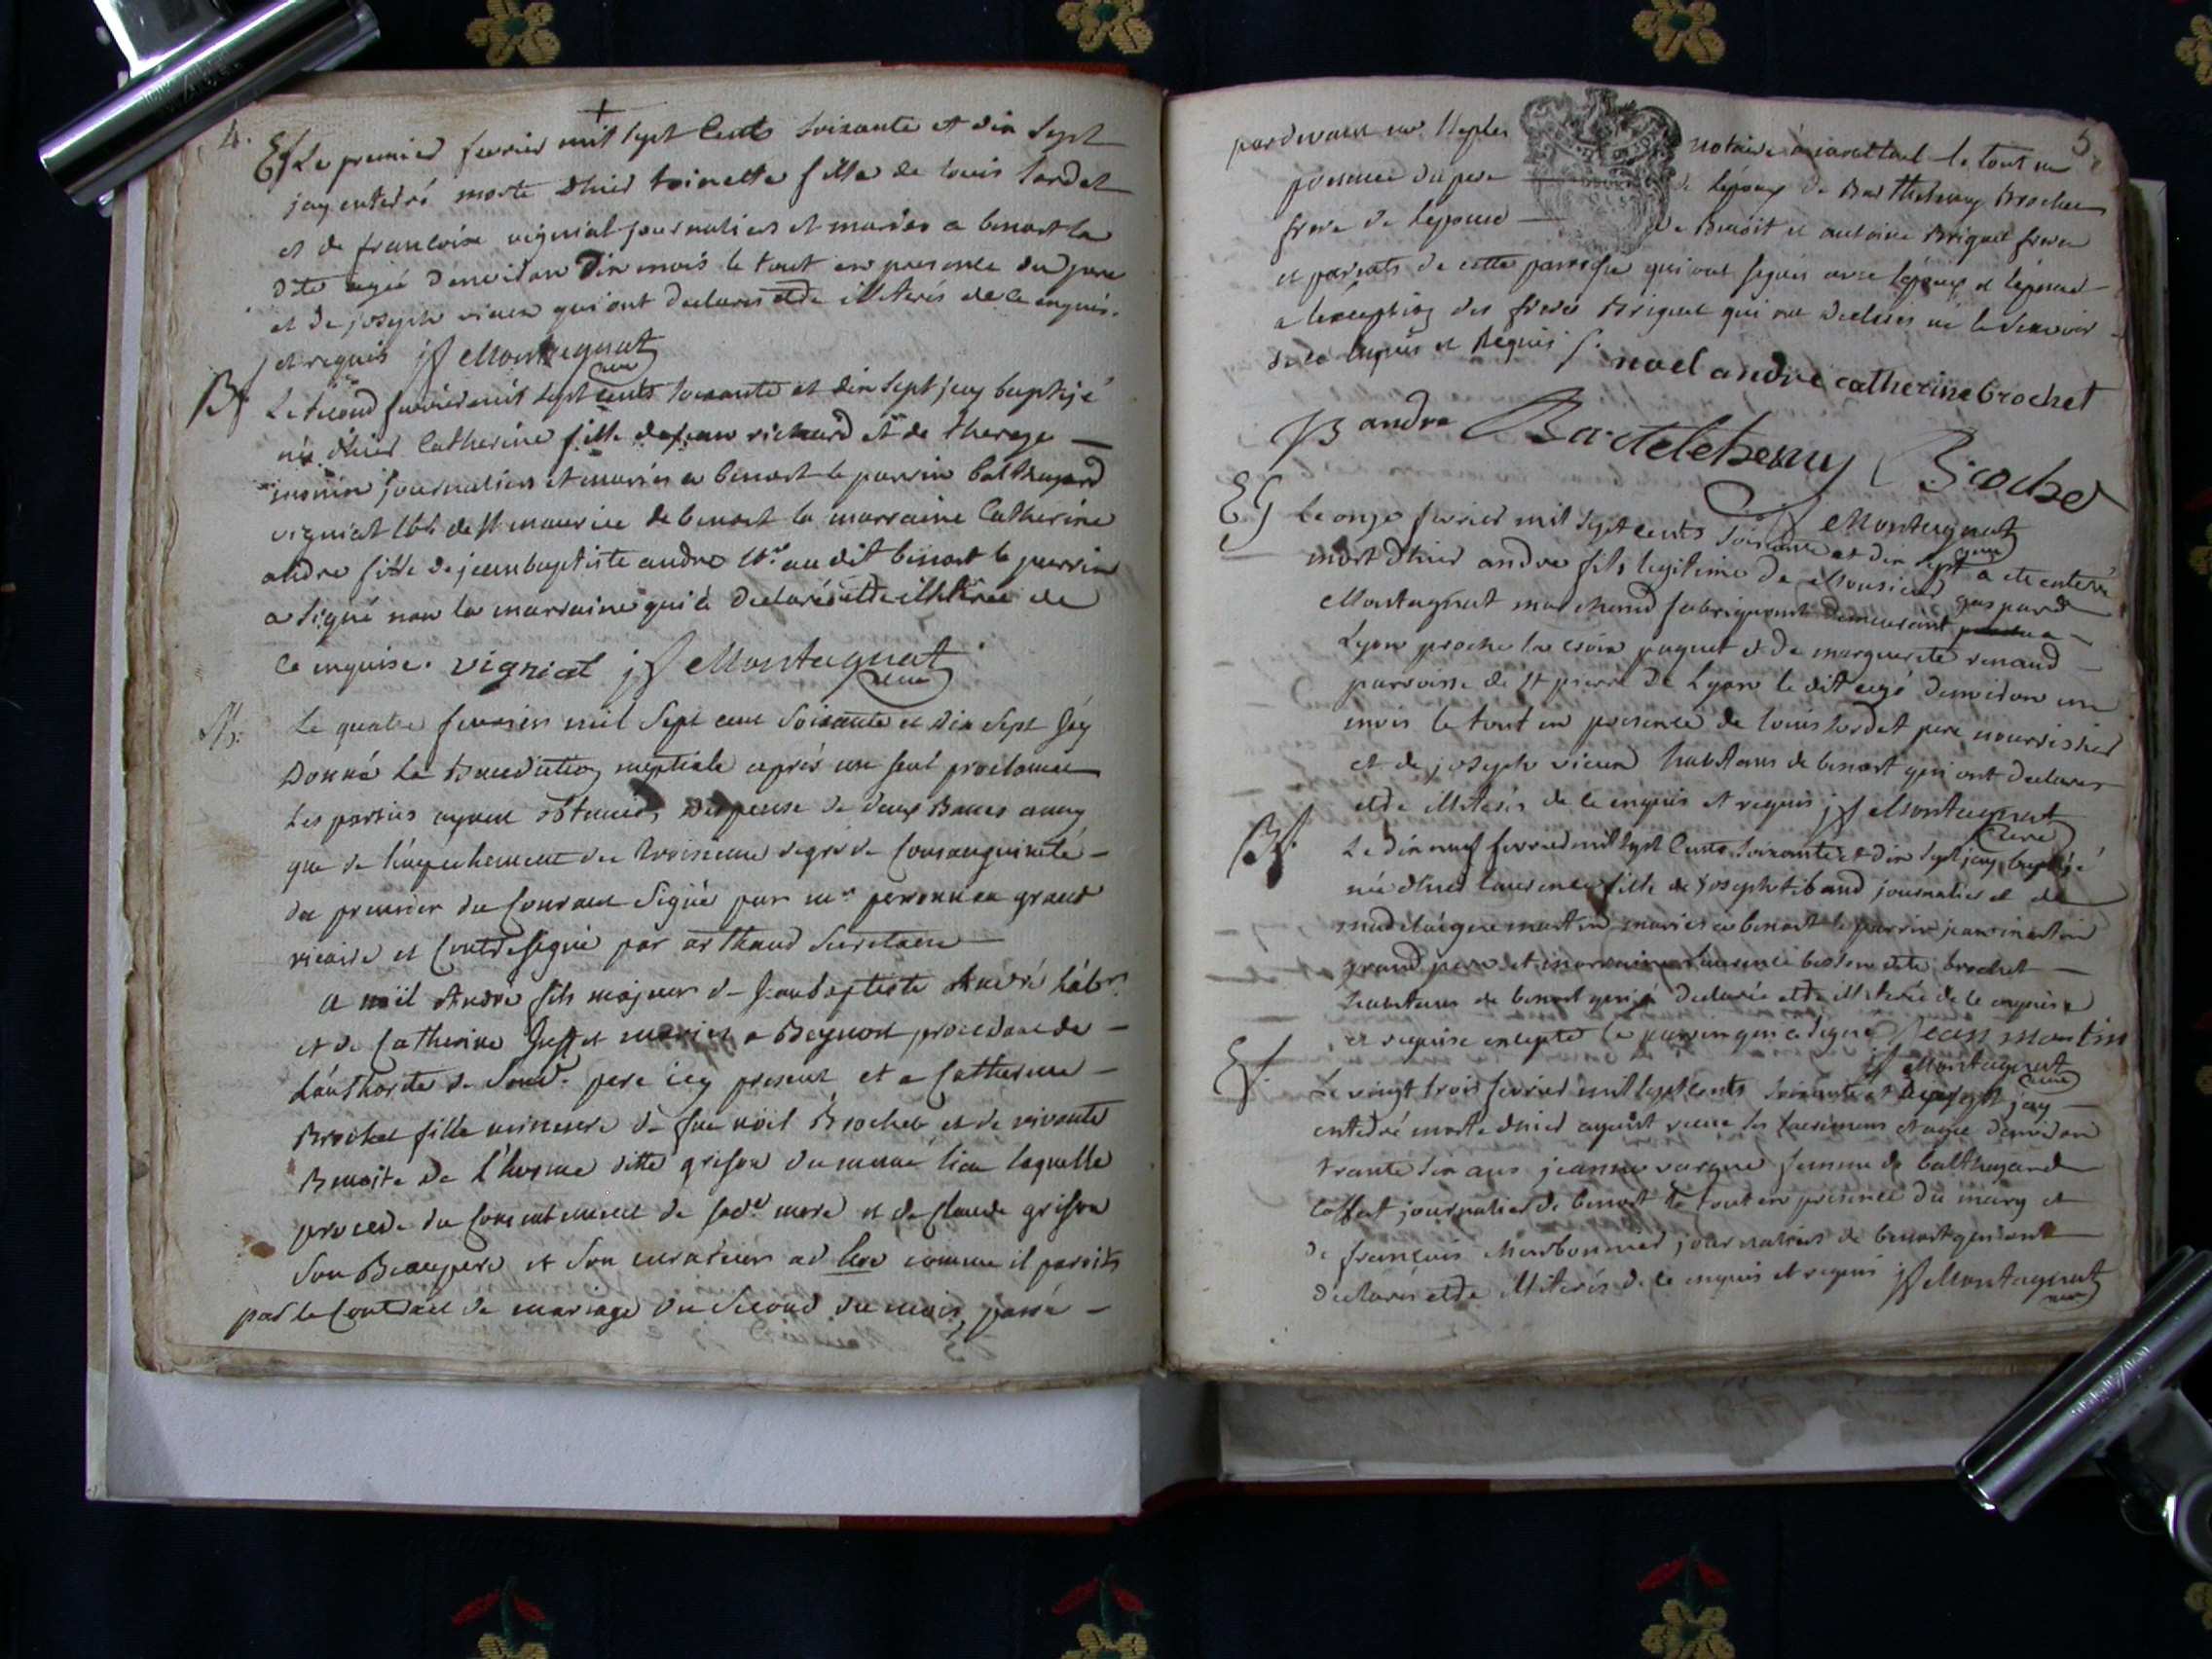 4.
Ef Le premier fevrier mil sept Cents soixante et dix sept
jay enterré morte dhier toinette fille de louis lardet
et de francoise vignial journaliers et mariés a benost la
dite agée denviron Dix mois le tout en presence du pere
et de joseph vieux qui ont declarés etde illiterés de ce enquis.
et requis jf Montagnat
curé
Bf. Le second fevrier mil sept cents soixante et dix sept jay baptizé
née dhier Catherine fille de jean richard et de thereze
monin journaliers et mariés a benost le parrin balthazard
vigniat de st maurice de benost la marraine Catherine
andre fille de jean baptiste andre au dit benost le parrin
a signé non la marraine qui à declaré etde illitérée de
ce enquise. vigniat jf Montagnat
curé
Le quatre fevrier mil Sept cent Soixante et Dix Sept Jéy
Donné la Benediction nuptiale après une seul proclamee
Les parties ayant obtenies Dispense de deux Bancs aincy
que de l'empechement du troisieme degré de Consanguinité
du premier du Courant Signée par mr perronneau grand
vicaire et Contresigné par arthaud Secretaire
a noël André fils majeur de Jean baptiste André habt
et de Catherine mariés a Beynost procedant de
L'authorite de Sond. pere icy present et a Catherine
Brochet fille mineure de feu noël Brochet et de vivante
Benoite De L'horme ditte grison du meme lieu laquelle
procede du Consentement de sad. mere et de Claude grison
Son Beaupere et Son curateur ad hoc comme il paroits
par le Contract de mariage du Second du mois, passé
5
pardevant notaire à le tout en
presence du pere de l'époux de Barthelemy Brochet
frere de l'epouse de Benoit et antoine Briquet freres
et parents de cette paroisse qui ont signés avec l'époux et l'épouse
a l'exception des freres Briquet qui ont declarés ne le scavoir
de ce enquis et Requis
noel andre catherine brochet
B andre Bartelehemy Brochet
jf Montagnat
curé
Ef Le onze fevrier mil sept cents soixante et dix sept a ete enterré
mort dhier andre fils legitime de Monsieur gaspard
Montagnat marchand fabriquant demeurant a
Lyon proche la croix paquet et de marguerite renaud
parroisse de st pierre de Lyon le dit agé denviron un
mois le tout en presence de louis lardet pere nourissier
et de joseph vieux habitans de benost qui ont declarés
etde illiterés de ce enquis et requis jf Montagnat
curé
Bf. Le dix neuf fevrier mil sept Cents soixante et dix sept jay baptizé
née dhier laurence fille de joseph tibaud journalier et de
madelaigne martin mariés a benost le parrin jean martin
grand pere et marraine laurence besson dite brochet
habitans de benost qui à declarée etde illiterée de ce enquise
et requise excepté le parrin qui a signé Jean martin
jf Montagnat
curé
Ef. Le vingt trois fevrier mil sept cents soixante et dix sept jay
enterré morte dhier ayant recue les sacremens et agée denviron
trante six ans jeanne femme de balthazard
journalier de benost le tout en presence du mary et
de francois Charbonnier journaliers de benost qui ont
declarés etde illiterés de ce enquis et requis jf Montagnat
curé